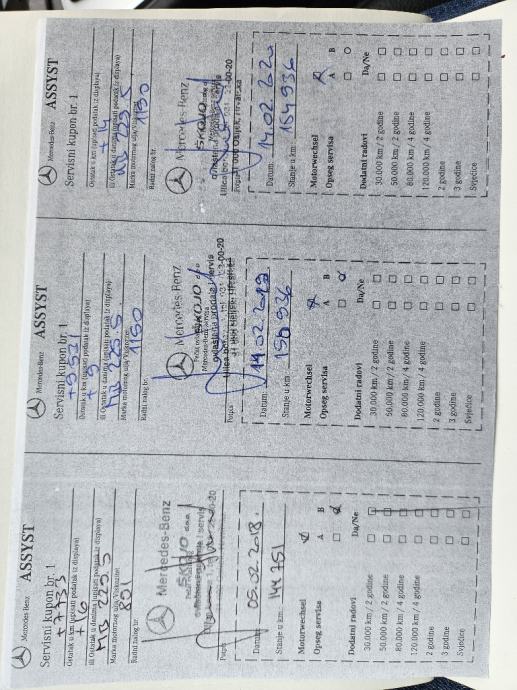 Mercedes-Benz ASSYST
Servisni kupon br. 1
+14
Ostatak u km (upisati podatak iz displaya)
ili Ostatak u danima (upisati podatak iz displaya)
MB 229.5
Marka motornog ulja/Viskozitet
1150
Radni nalog br.
Mercedes-Benz
SKOJO d.o.o.
31000 Osijek, Hrvatska
Potpis
Datum: 14.02.2020
Stanje u km: 164936
Motorwechsel
Opseg servisa A B
Dodatni radovi Da/Ne
30.000 km / 2 godine
50.000 km / 2 godine
80.000 km / 4 godine
120.000 km / 4 godine
2 godine
3 godine
Svjećice
Mercedes-Benz ASSYST
Servisni kupon br. 1
+9521
Ostatak u km (upisati podatak iz displaya)
+5
ili Ostatak u danima (upisati podatak iz displaya)
MB 229.5
Marka motornog ulja/Viskozitet
1150
Radni nalog br.
Mercedes-Benz
SKOJO d.o.o.
ovlaštena prodaja i servis
Potpis
Datum: 14.02.2019
Stanje u km: 150936
Motorwechsel
Opseg servisa A B
Dodatni radovi Da/Ne
30.000 km / 2 godine
50.000 km / 2 godine
80.000 km / 4 godine
120.000 km / 4 godine
2 godine
3 godine
Svjećice
Mercedes-Benz ASSYST
Servisni kupon br. 1
+7733
Ostatak u km (upisati podatak iz displaya)
ili Ostatak u danima (upisati podatak iz displaya)
MB 229.5
Marka motornog ulja/Viskozitet
801
Radni nalog br.
Mercedes-Benz
SKOJO d.o.o.
Potpis
Datum: 05.02.2018.
Stanje u km: 144 751
Motorwechsel
Opseg servisa A B
Dodatni radovi Da/Ne
30.000 km / 2 godine
50.000 km / 2 godine
80.000 km / 4 godine
120.000 km / 4 godine
2 godine
3 godine
Svjećice